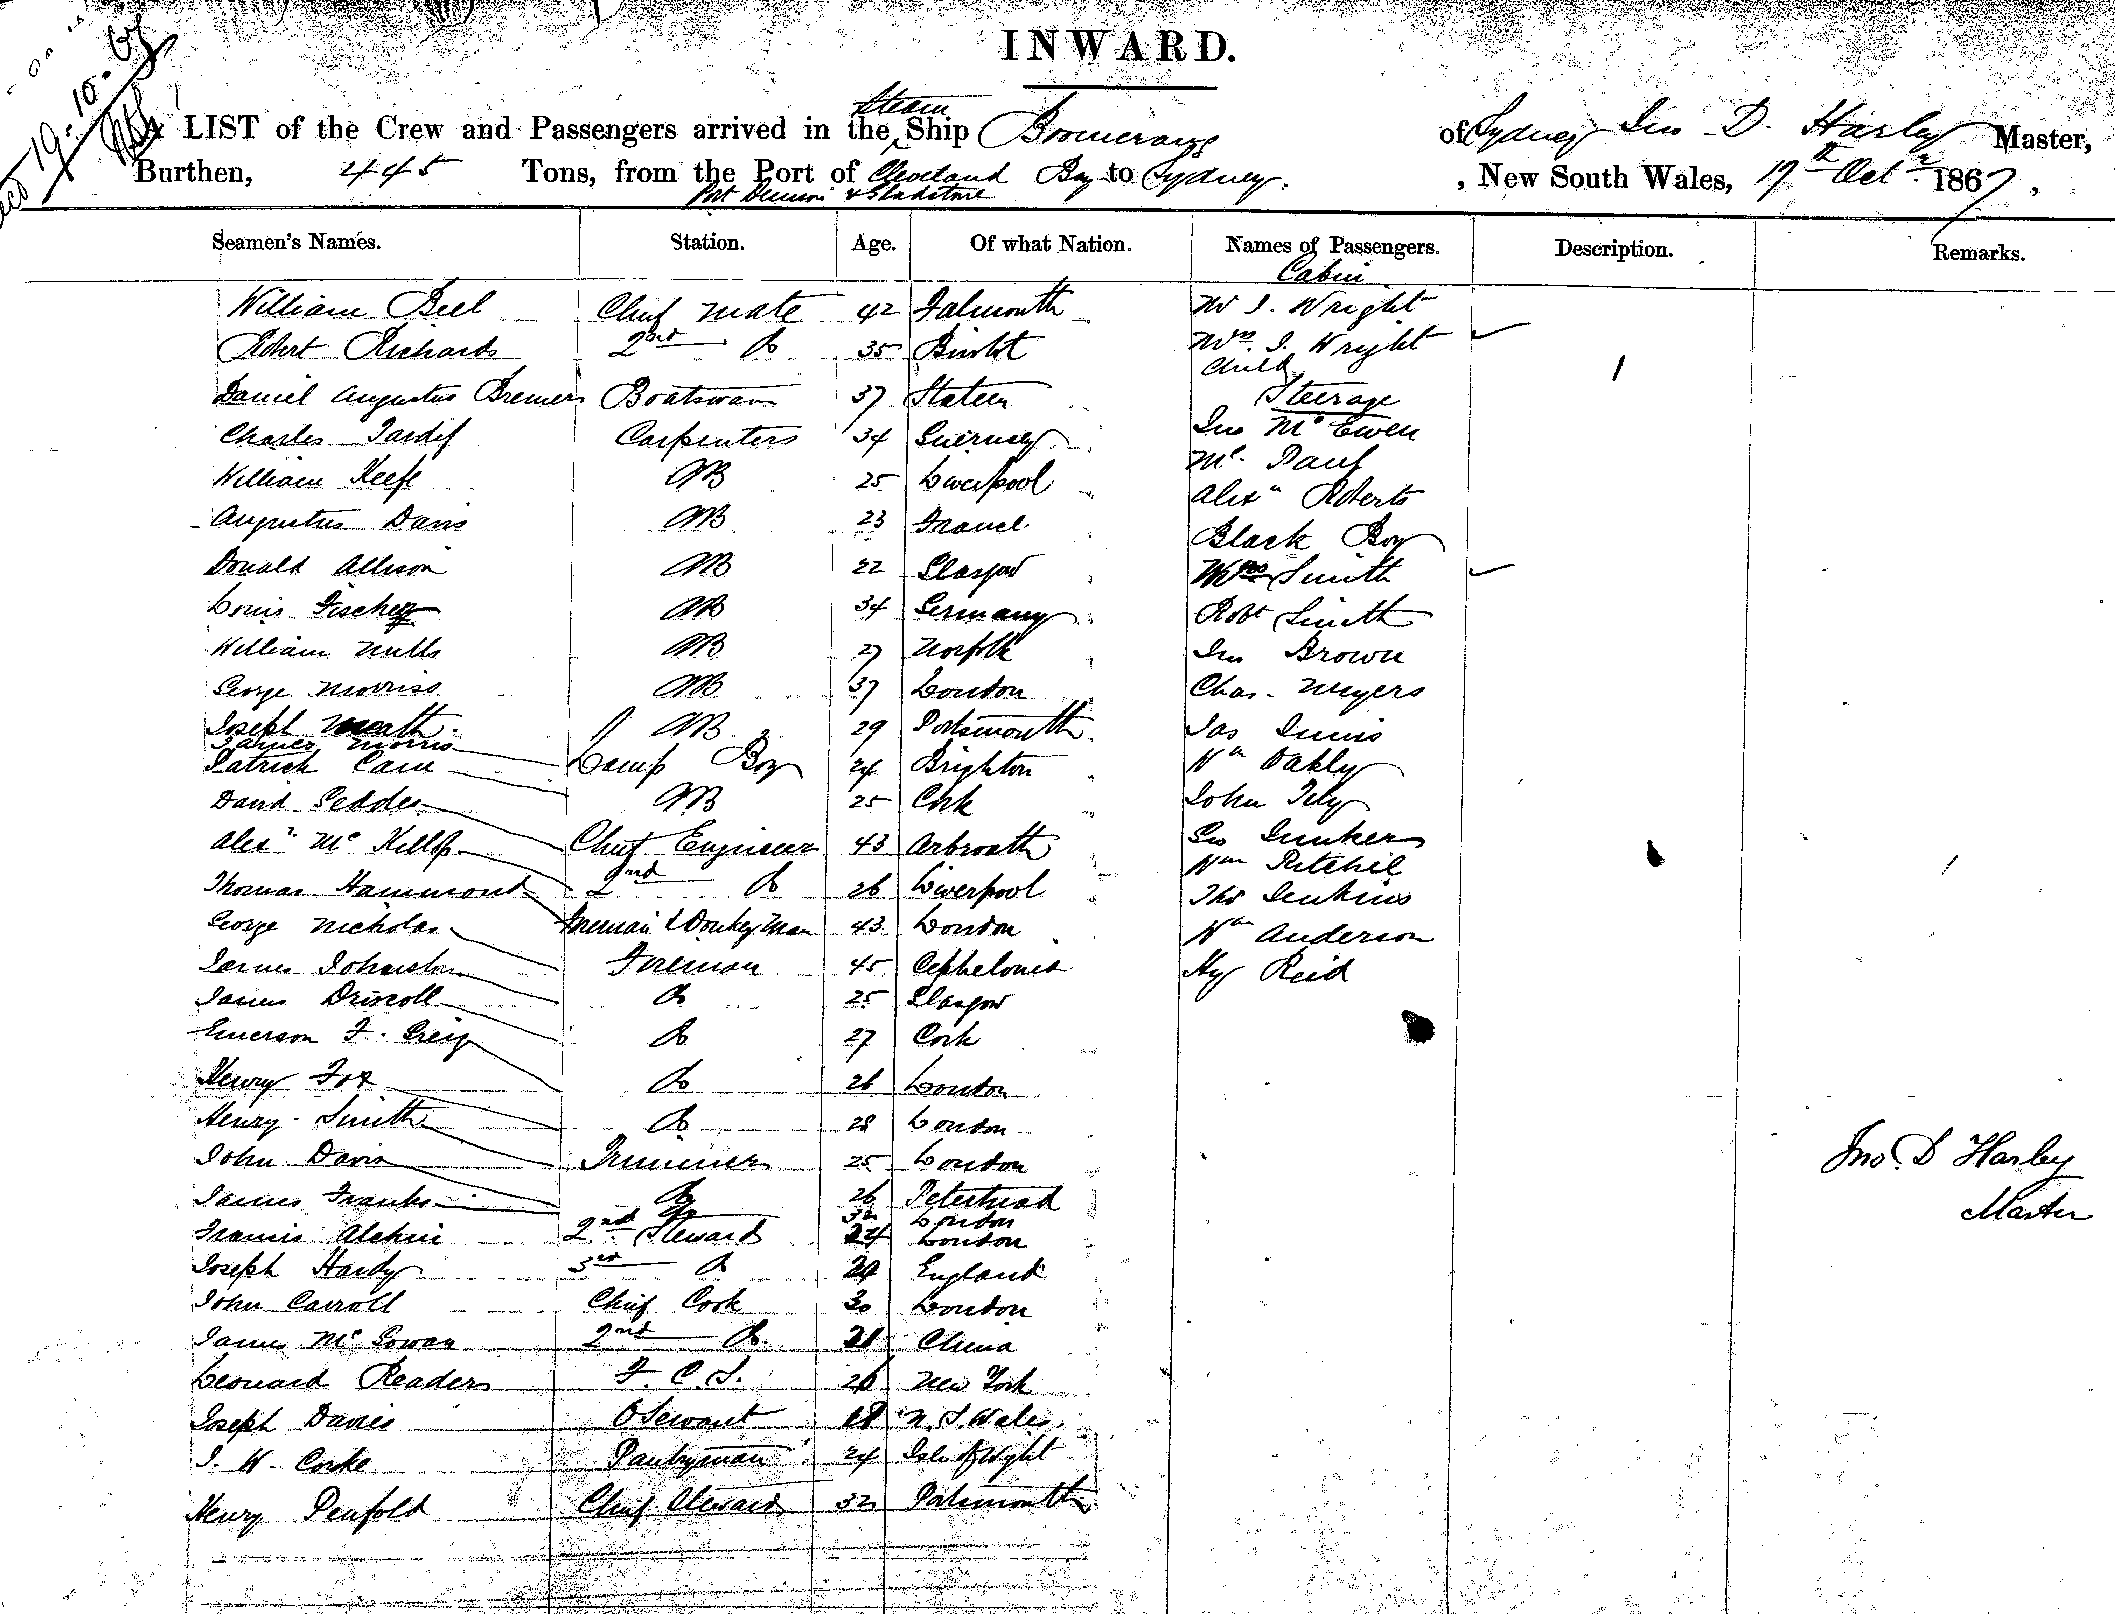 INWARD.
19-10-67
A LIST of the Crew and Passengers arrived in the Steam Ship Boomerang of Sydney Jno D. Harley Master,
Burthen, 445 Tons, from the Port of Cleveland Bay to Sydney. , New South Wales, 19th Octr. 1867,
Port Denison & Gladstone
Seamen's Names. Station. Age. Of what Nation. Names of Passengers. Description. Remarks.
Cabin
William Bell Chief Mate 42 Falmouth Mr J. Wright
Robert Richards 2nd Do 35 Bristol Mrs. J. Wright
Child
Daniel Augustus Bremers Boatswain 37 Stateen Steerage
Charles Tardif Carpenters 34 Guernsey Jno McEwen
William Keefe AB 25 Liverpool Mc.
Augustus Davis AB 23 France Alexr Roberts
Black Boy
Donald Allison AB 22 Glasgow Smith
Louis Fischer AB 34 Germany Robt Smith
William Mills AB 27 Norfolk Jno Brown
George Morriss AB 37 London Chas. Meyers
Joseph AB 29 Portsmouth Jas
James Morris Lamp Boy 24 Brighton Wm Oakly
Patrick Cain AB 25 Cork John
David Geddes Chief Engineer 43 Arbroath Geo Junkers
Wm Ritchie
Alexr McKillop 2nd Do 26 Liverpool Thos Jenkins
Thomas Hammond Fireman & Donkey Man 43 London Wm Anderson
George Nicholas Fireman 45 Cephelonia Hy Reid
James Johnston Do 25 Glasgow
James Driscoll Do 27 Cork
Emerson F. Greig Do 26 London
Henry Fox Do 28 London
Henry Smith Trimmer 25 London
John Davis Do 26 Peterhead
James Franks Do 32 London
Francis Alchin 2nd Steward 24 London
Joseph Hardy 3rd Do 29 England
John Carroll Chief Cook 30 London
James McGowan 2nd Do 21 China
Leonard Readers F. C. S. 26 New York
Joseph Davies O Servant 18 N. S. Wales
J. W. Cooke Pantryman 24 Isle of Wyght
Henry Penfold Chief Steward 32 Portsmouth
Jno. D Harley
Master